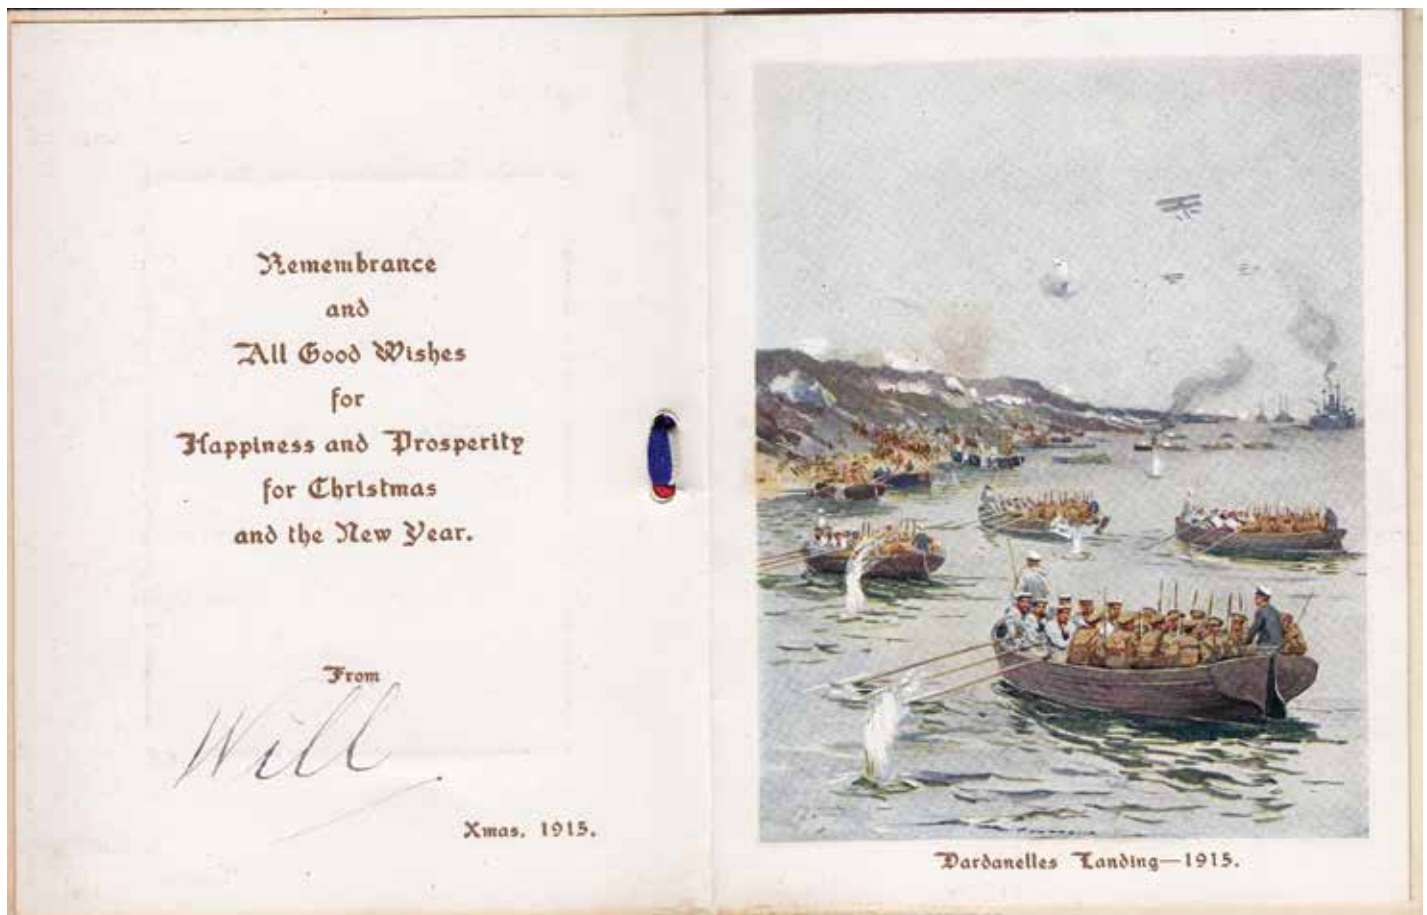 Remembrance
and
All Good Wishes
for
Happiness and Prosperity
for Christmas
and the New Year.
From
Will
Xmas, 1915.
Dardanelles Landing—1915.